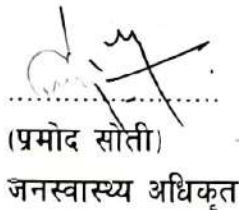 (प्रमोद सौती)
जनस्वास्थ्य अधिकृत